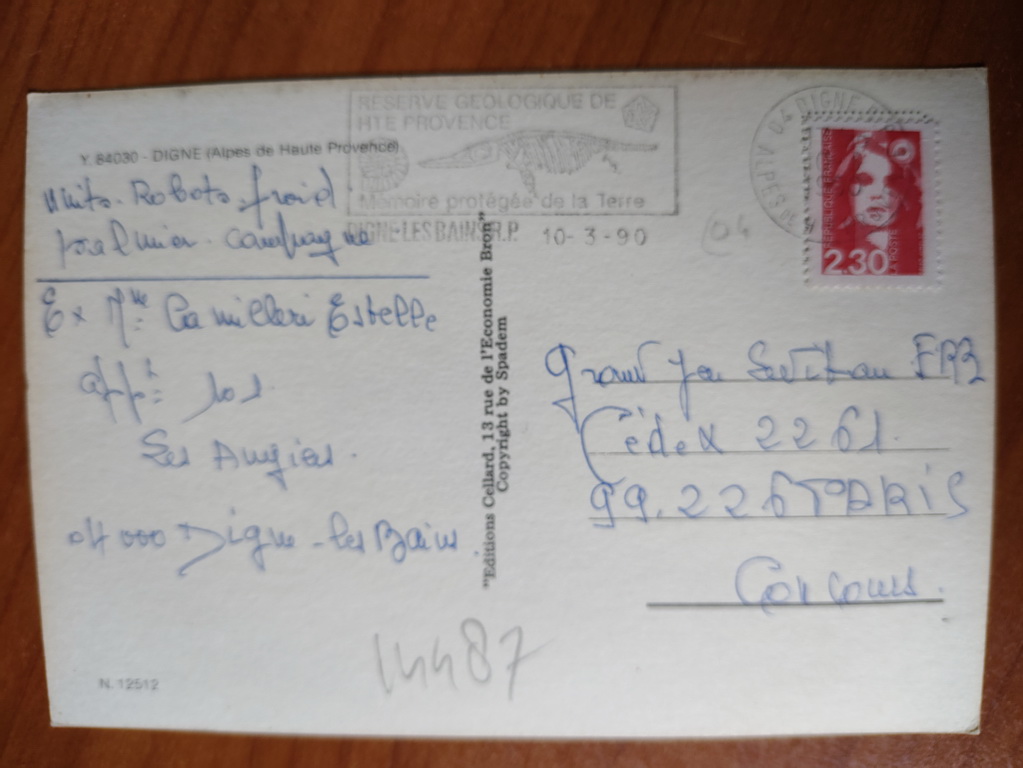 RESERVE GEOLOGIQUE DE
HTE PROVENCE
Mémoire protégée de la Terre
DIGNE-LES-BAINS R.P. 10-3-90
ALPES DE
DIGNE
REPUBLIQUE FRANÇAISE
LA POSTE
2.30
04
Y. 84030 - DIGNE (Alpes de Haute Provence)
Robots. froid
palmier. campagne
Ex Mme Camilleri Estelle
101
Les Augiers.
04000 Digne-les Bains.
"Editions Cellard, 13 rue de l'Economie Bron"
Copyright by Spadem
Grand Jeu FR3
Cédex 2261.
99.226 PARIS
Concours.
14487
N. 12512